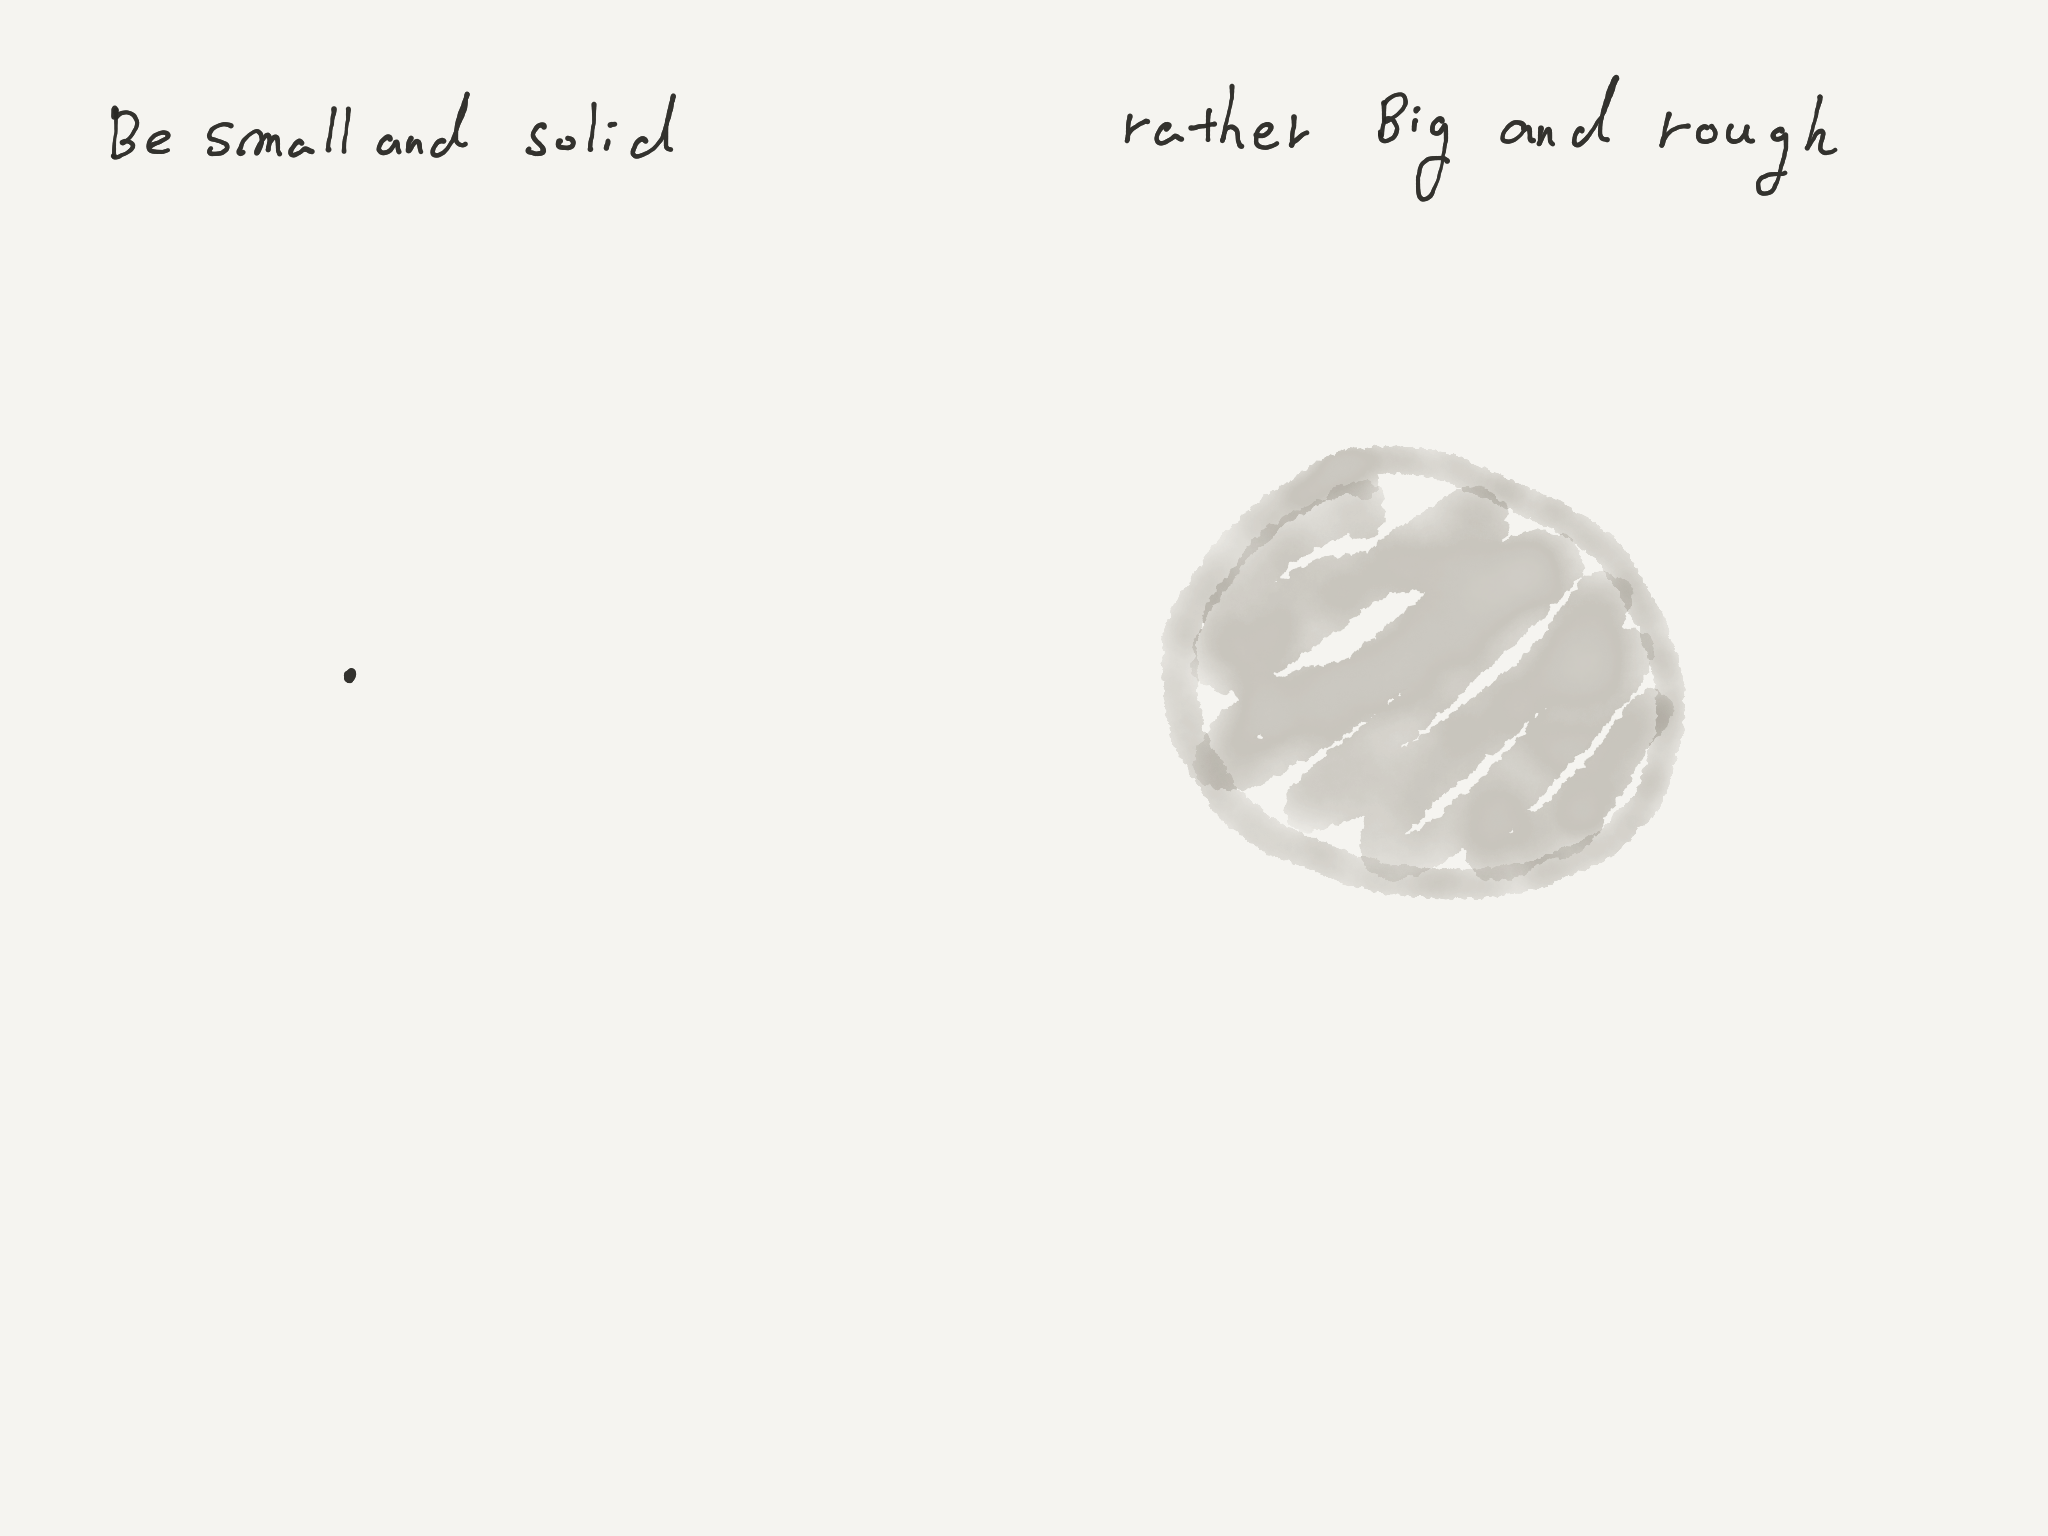 Be small and solid
rather Big and rough